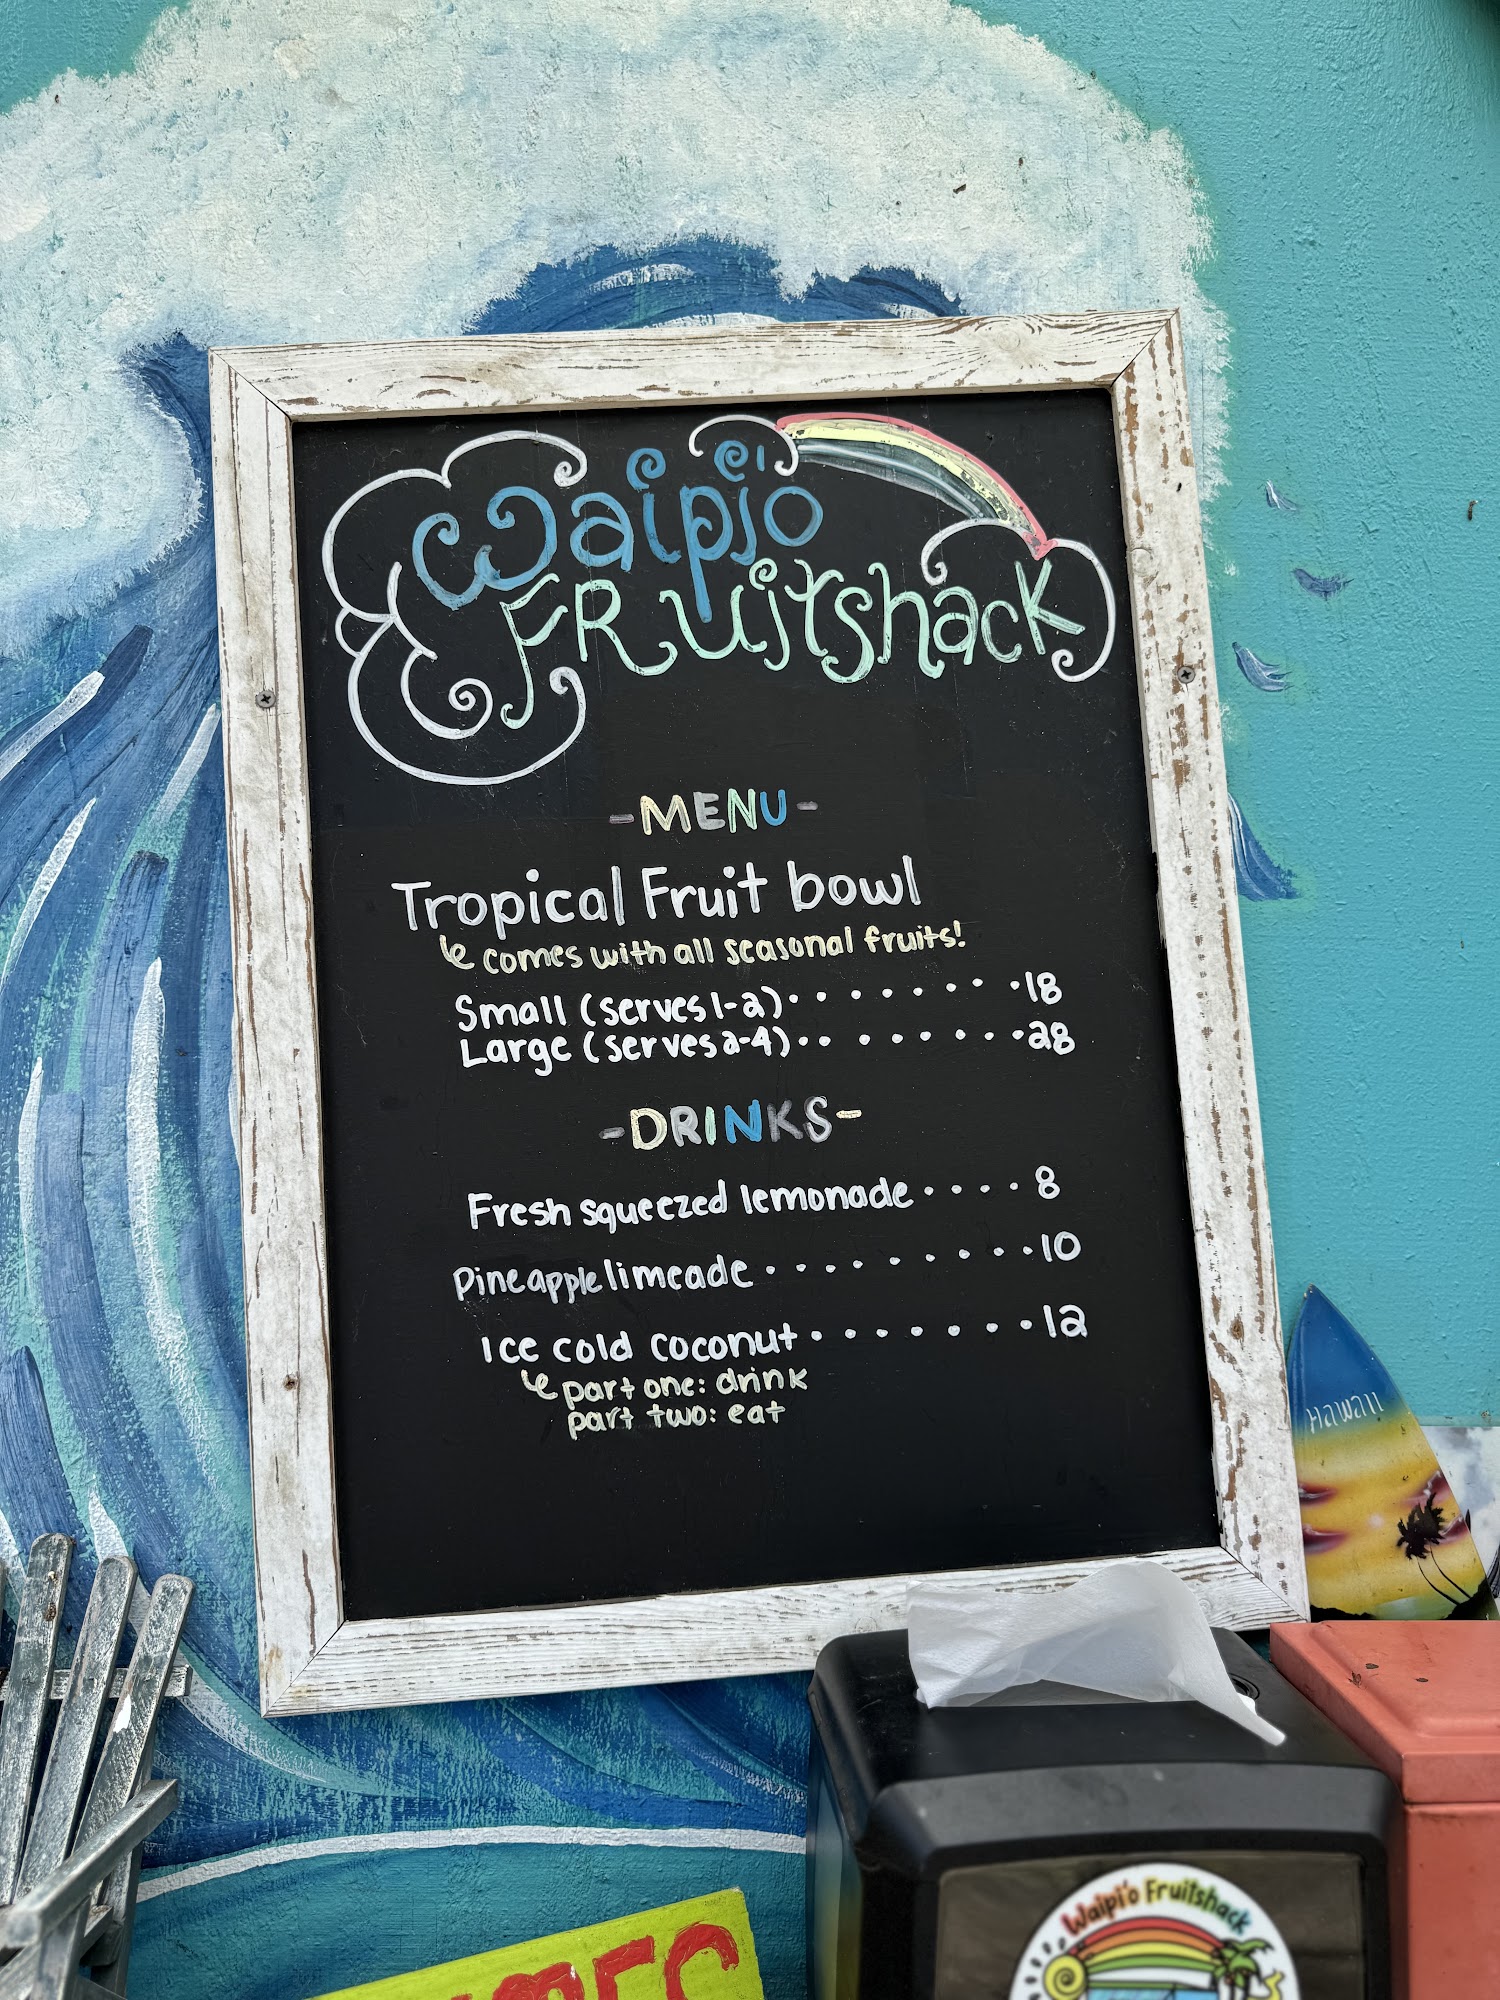 Waipi'o
FRuitshack
-MENU-
Tropical Fruit bowl
comes with all seasonal fruits!
Small (serves 1-2)........18
Large (serves 2-4)........28
-DRINKS-
Fresh squeezed lemonade....8
Pineapple limeade.........10
Ice cold coconut........12
part one: drink
part two: eat
Hawaii
Waipi'o Fruitshack